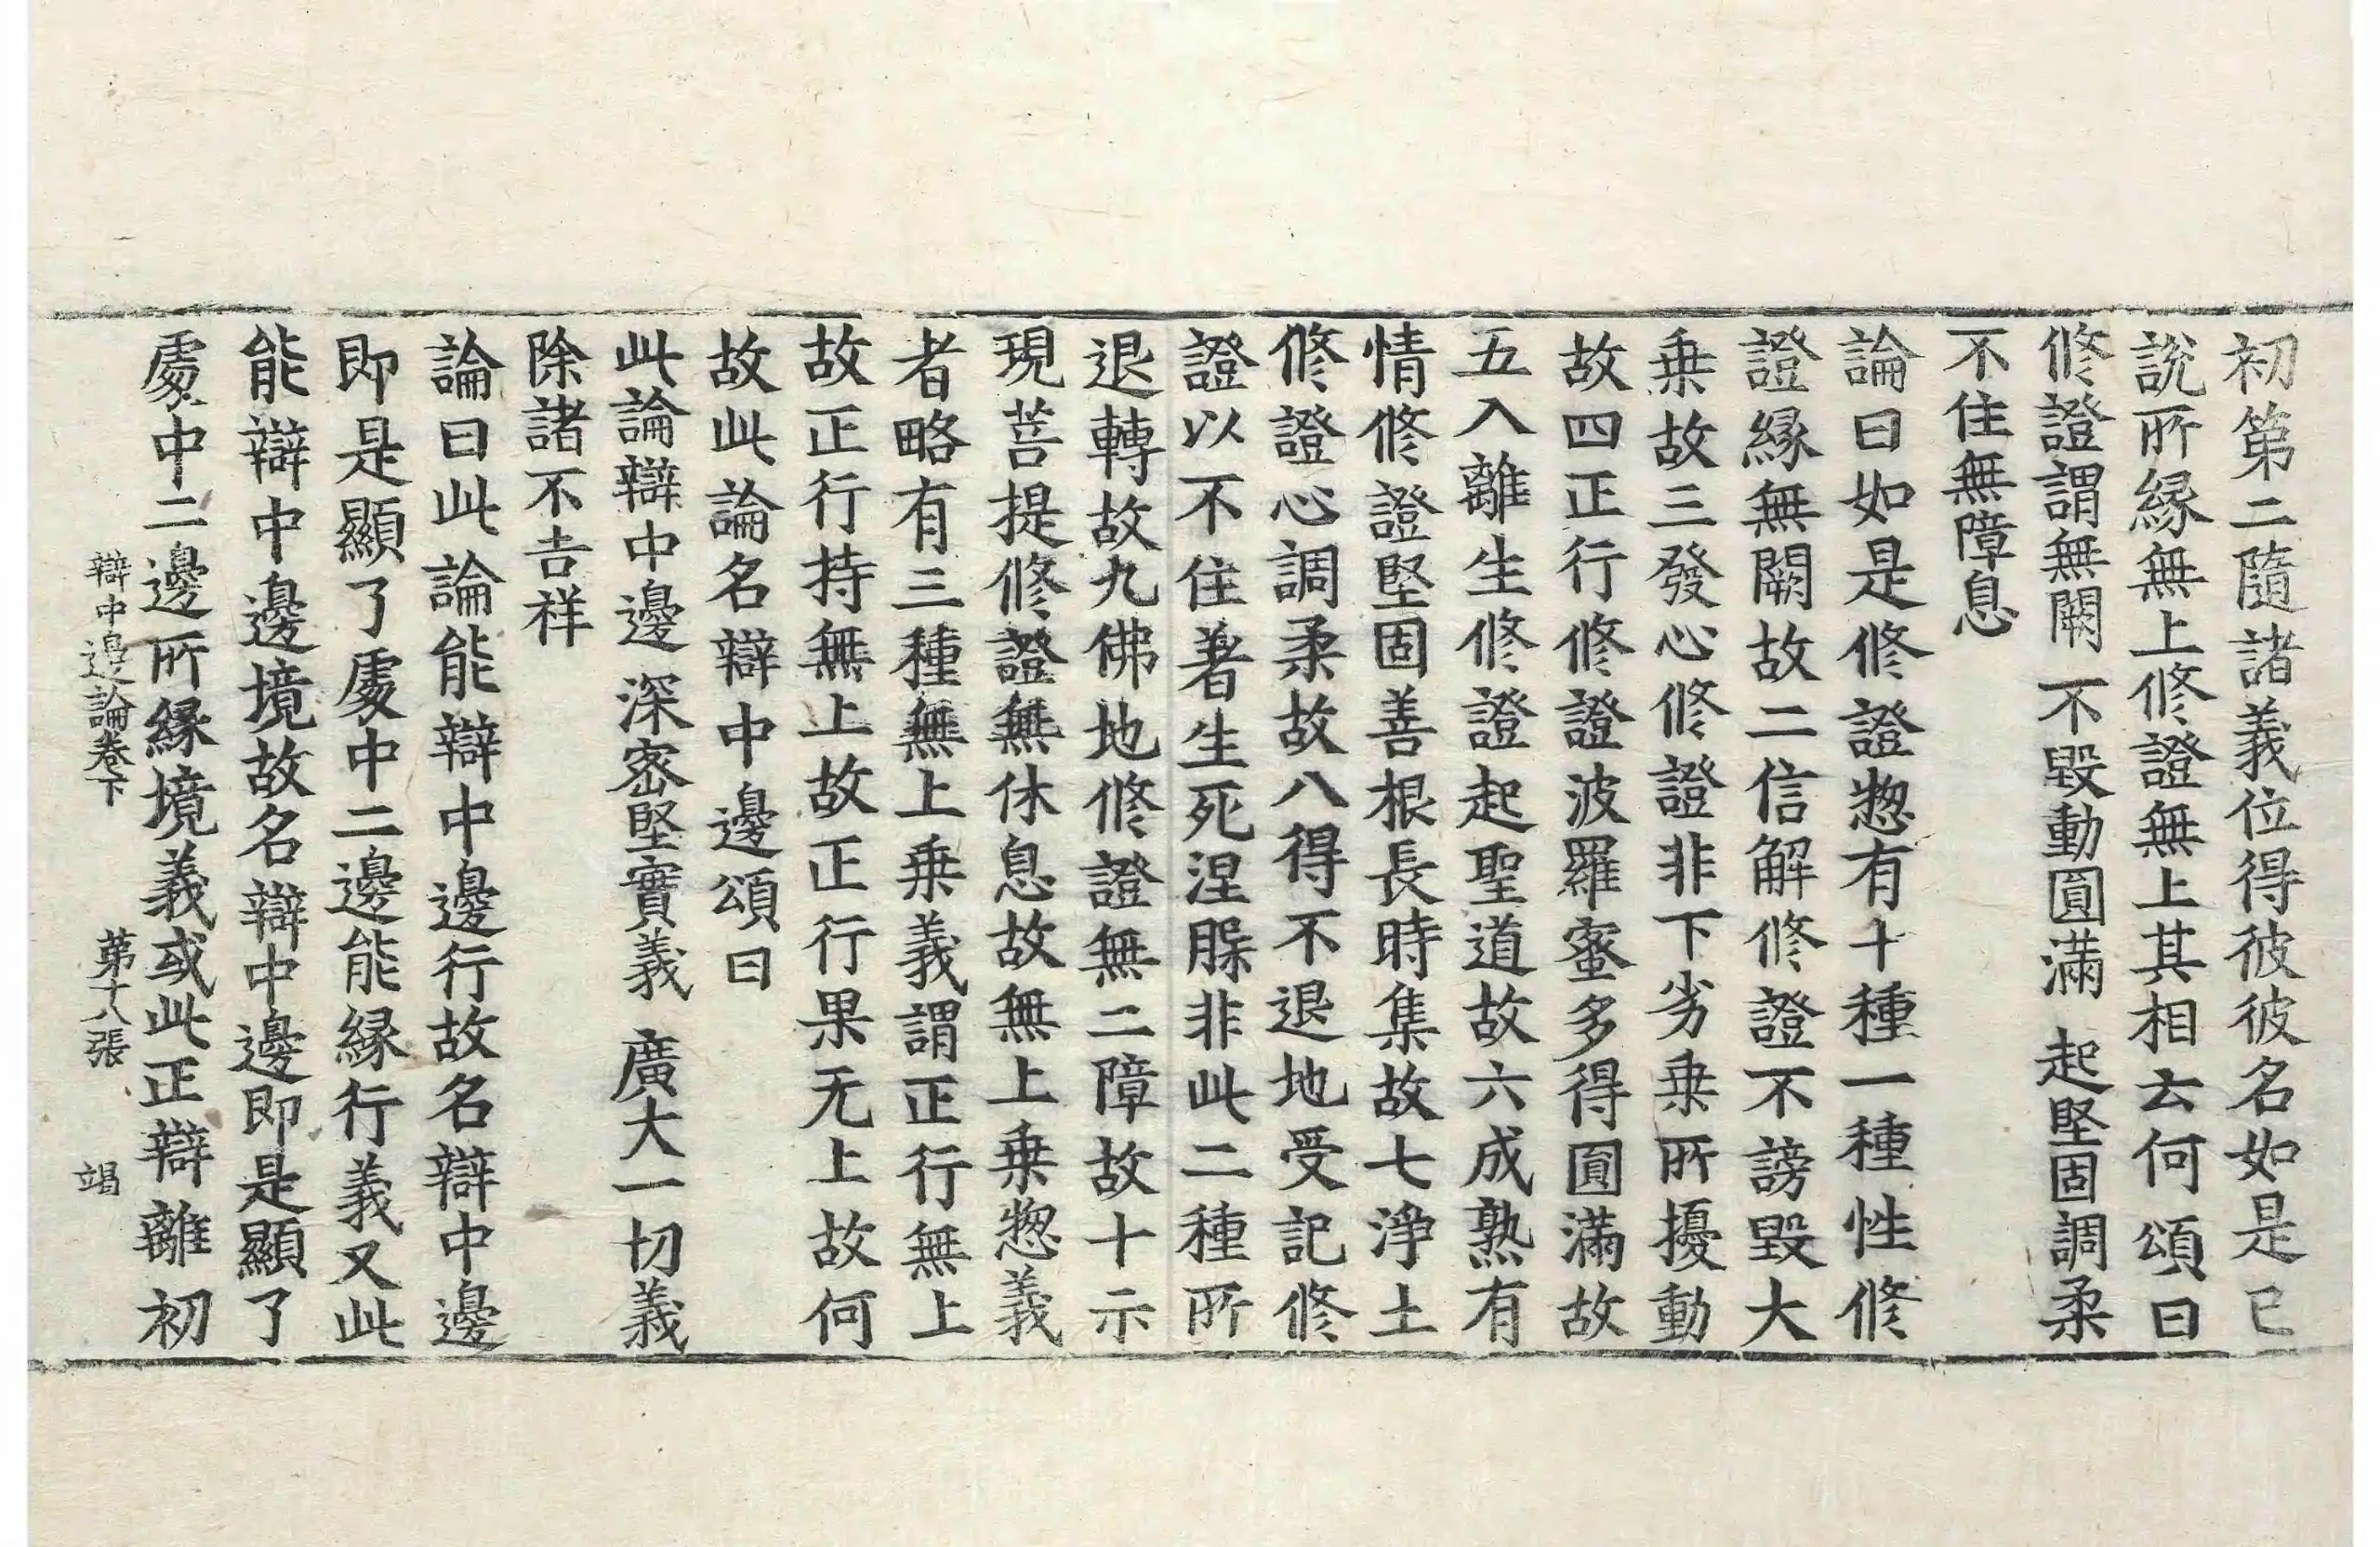 初第二隨諸義位得彼彼名如是已
說所縁無上修證無上其相云何頌曰
修證謂無闕　不毀動圓滿　起堅固調柔
不住無障息
論曰如是修證惣有十種一種性修
證縁無闕故二信解修證不謗毀大
乗故三發心修證非下劣乗所擾動
故四正行修證波羅蜜多得圓滿故
五入離生修證起聖道故六成熟有
情修證堅固善根長時集故七淨土
修證心調柔故八得不退地受記修
證以不住著生死涅槃非此二種所
退轉故九佛地修證無二障故十示
現菩提修證無休息故無上乗惣義
者略有三種無上乗義謂正行無上
故正行持無上故正行果无上故何
故此論名辯中邊頌曰
此論辯中邊　深密堅實義　廣大一切義
除諸不吉祥
論曰此論能辯中邊行故名辯中邊
即是顯了處中二邊能縁行義又此
能辯中邊境故名辯中邊即是顯了
處中二邊所縁境義或此正辯離初
辯中邊論卷下　第十八張　竭